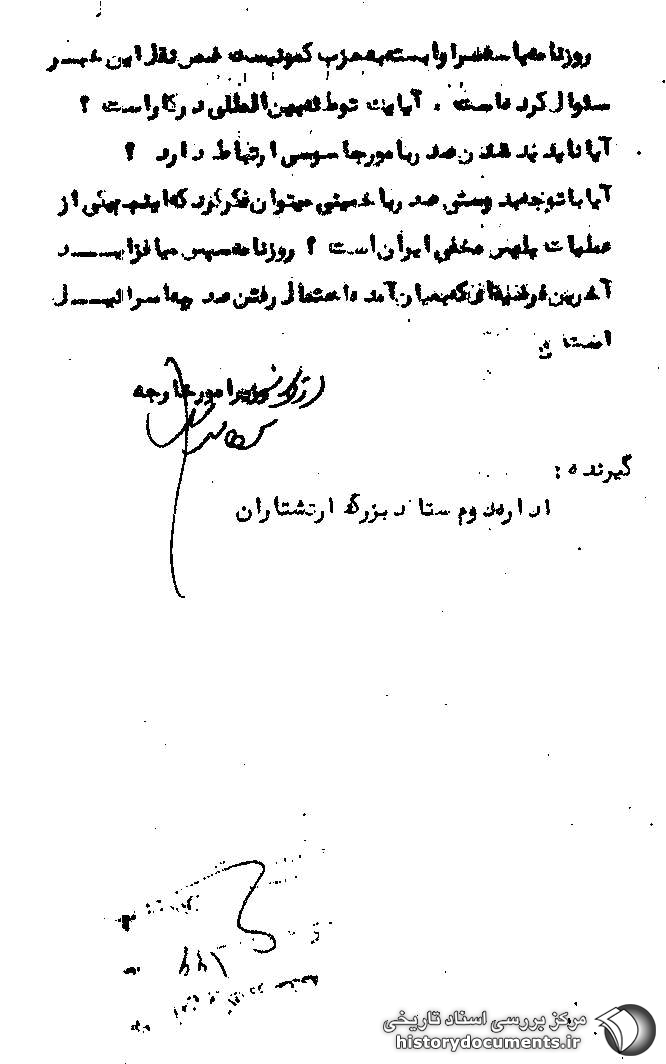 روزنامه پاسفرا وابسته به حزب کمونیست ضمن نقل این خبر
سئوال کرده است . آیا یک توطئه بین المللی در کار است ؟
آیا ناپدید شدن صدر با امور جاسوسی ارتباط دارد ؟
آیا با توجه به دوستی صدر با خمینی میتوان فکر کرد که اینهم یکی از
عملیات پلیس مخفی ایران است ؟ روزنامه سپس میافزاید
آخرین فرضیه‌ای که بمیان آمده احتمال رفتن صدر به اسرائیل
است
از طرف وزیر امور خارجه
گیرنده :
اداره دوم ستاد بزرگ ارتشتاران
مرکز بررسی اسناد تاریخی
historydocuments.ir